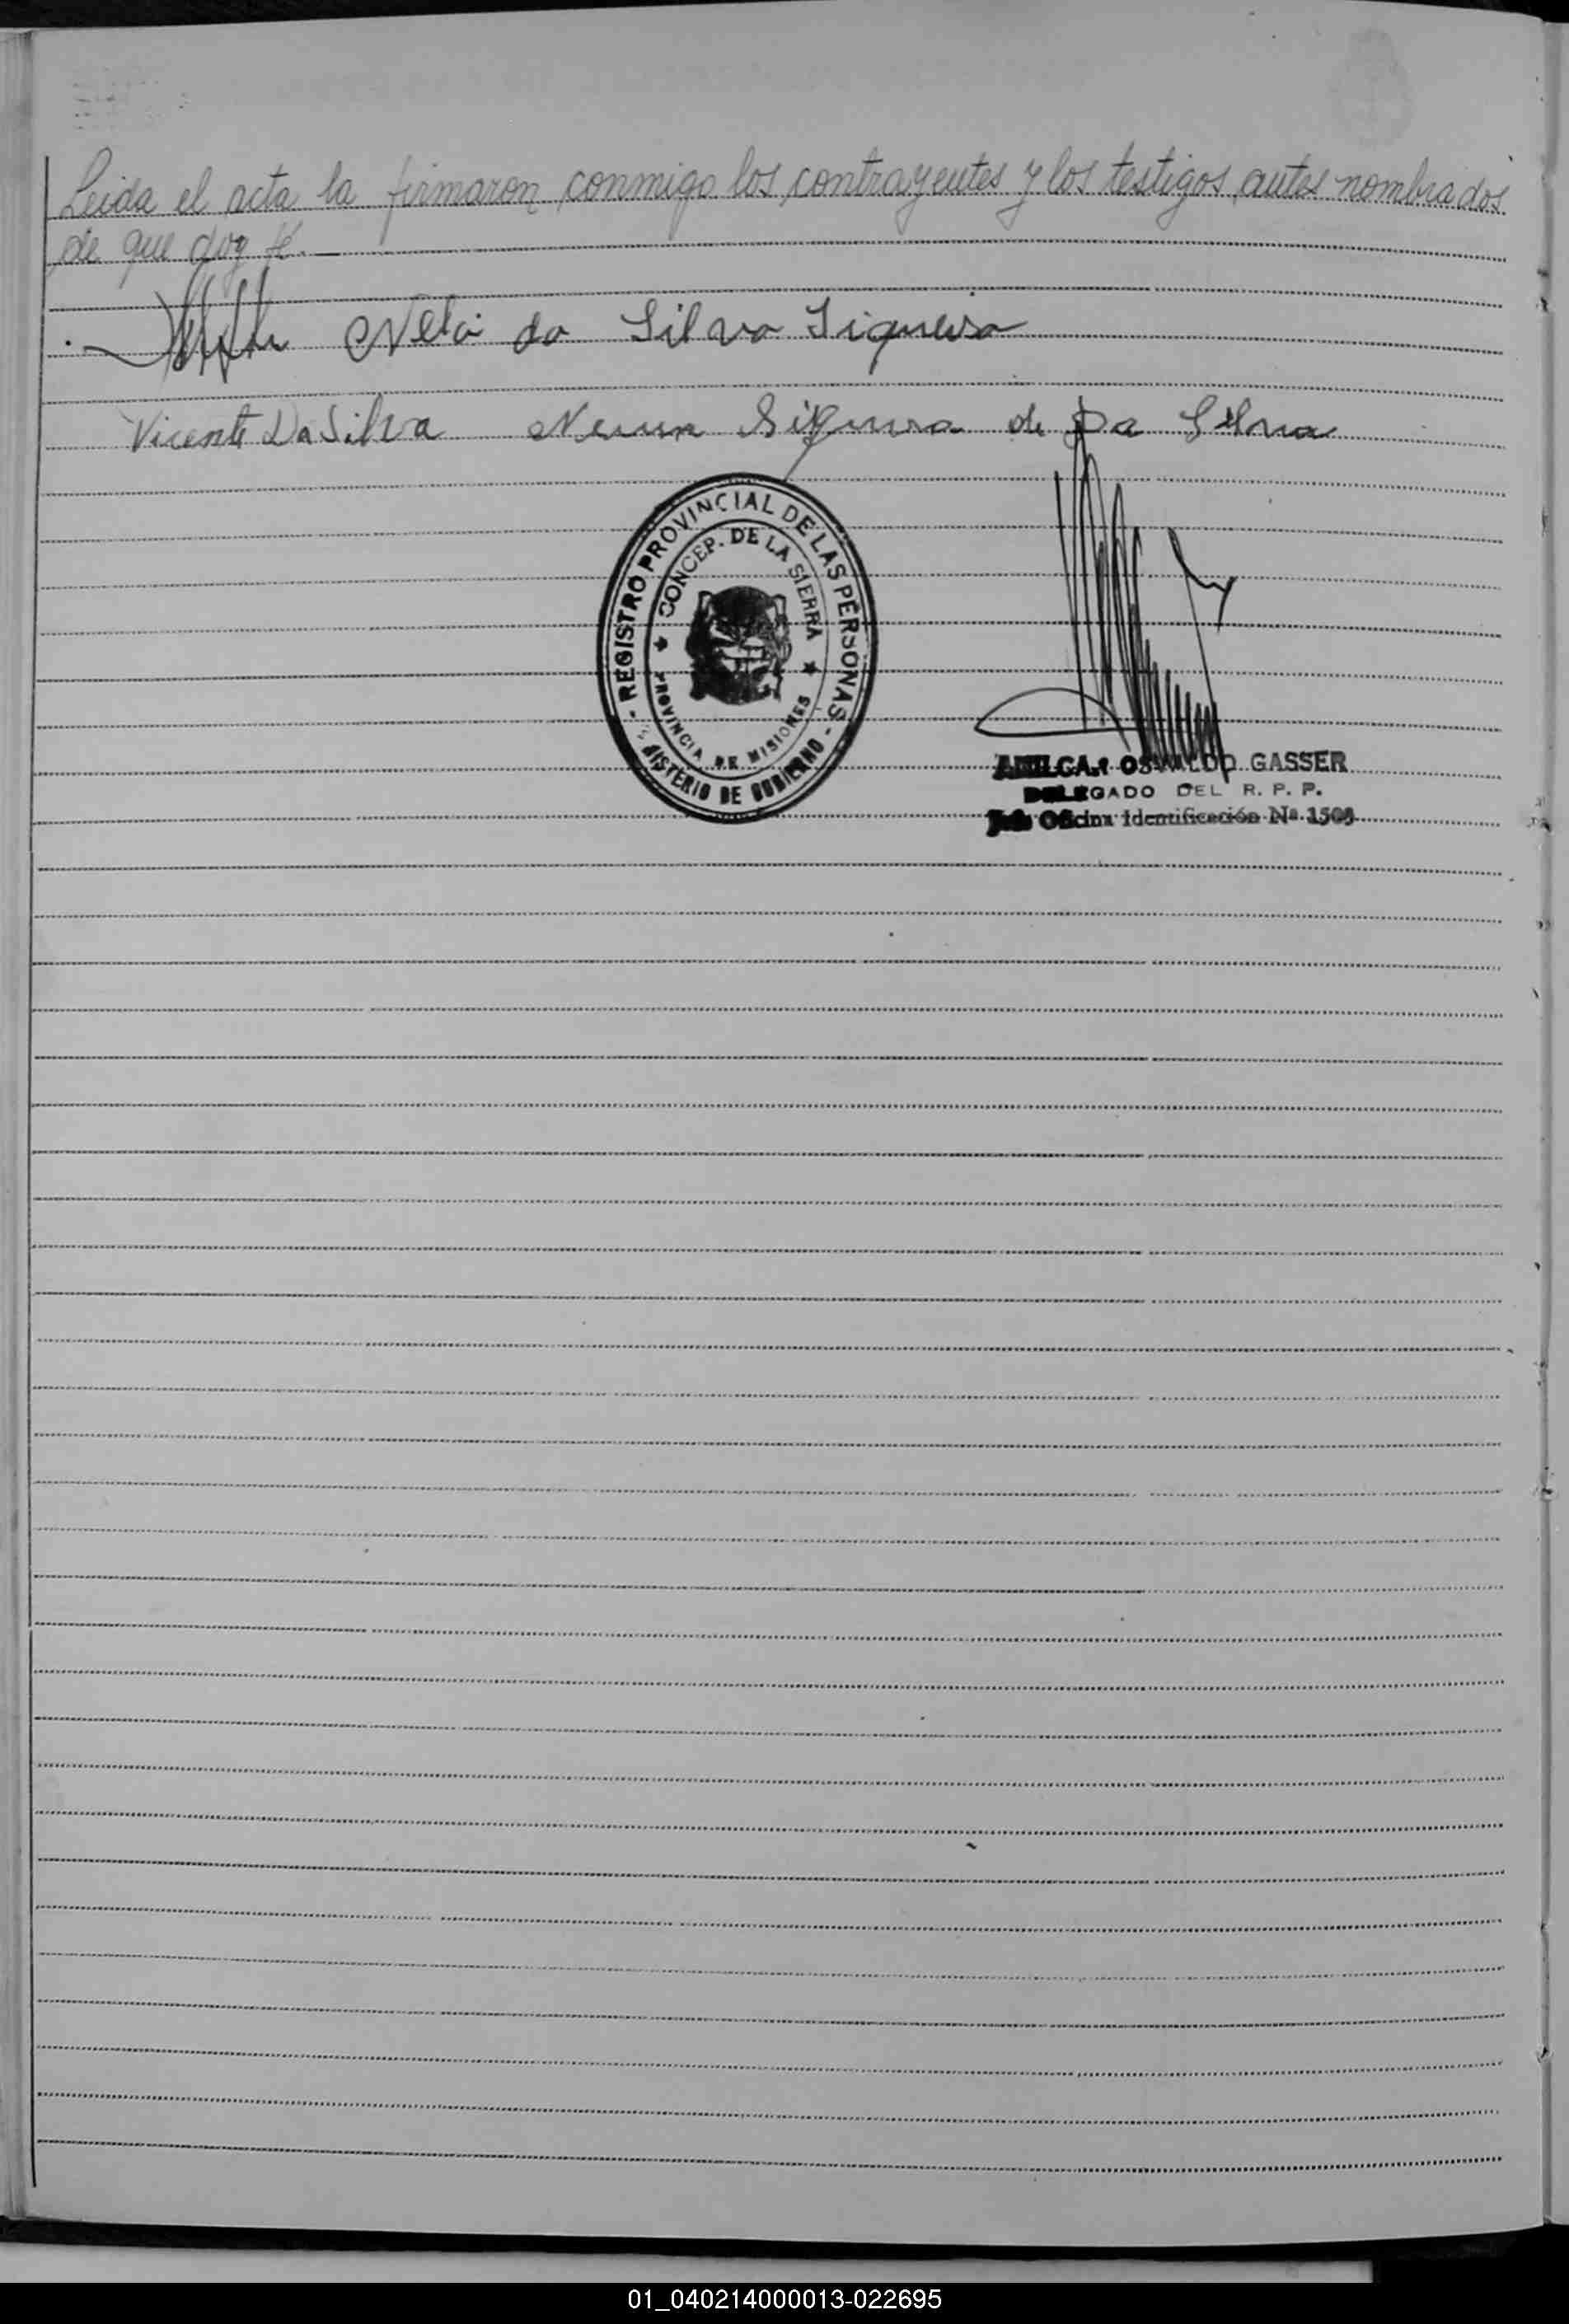 Leida el acta la firmaron conmigo los contrayentes y los testigos antes nombrados
de que doy fé.
Neli da Silva Siqueira
Vicente Da Silva Siqueira de Da Silva
- REGISTRO PROVINCIAL DE LAS PERSONAS -
CONCEP. DE LA SIERRA
PROVINCIA DE MISIONES
MISTERIO DE GOBIERNO
OSVALDO GASSER
DELEGADO DEL R. P. P.
Oficina Identificación Nº 1505
01_040214000013-022695